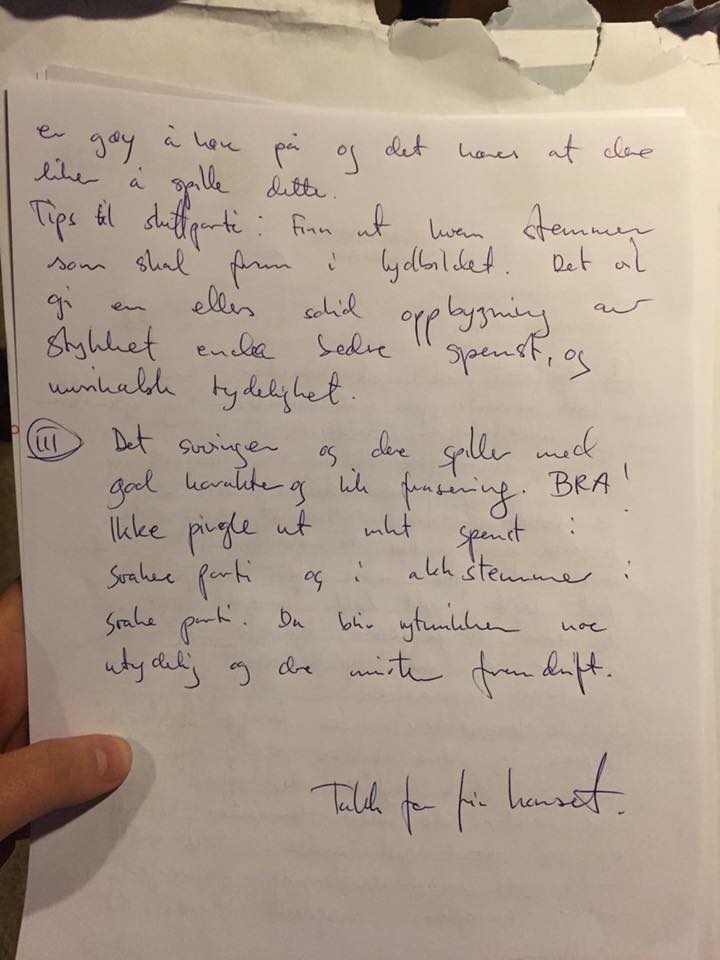 er gøy å høre på og det høres at dere
liker å spille dette.
Tips til sluttparti: Finn ut hvem stemmer
som skal frem i lydbildet. Det vil
gi en ellers solid oppbygning av
stykket enda bedre spenst, og
musikalsk tydelighet.
III Det svinger og dere spiller med
god karakter og lik frasering. BRA!
Ikke pingle ut mht spenst i
svakere parti og i akk.stemmer i
svake parti. Da blir rytmikken noe
utydelig og dere mister fremdrift.
Takk for fin konsert.